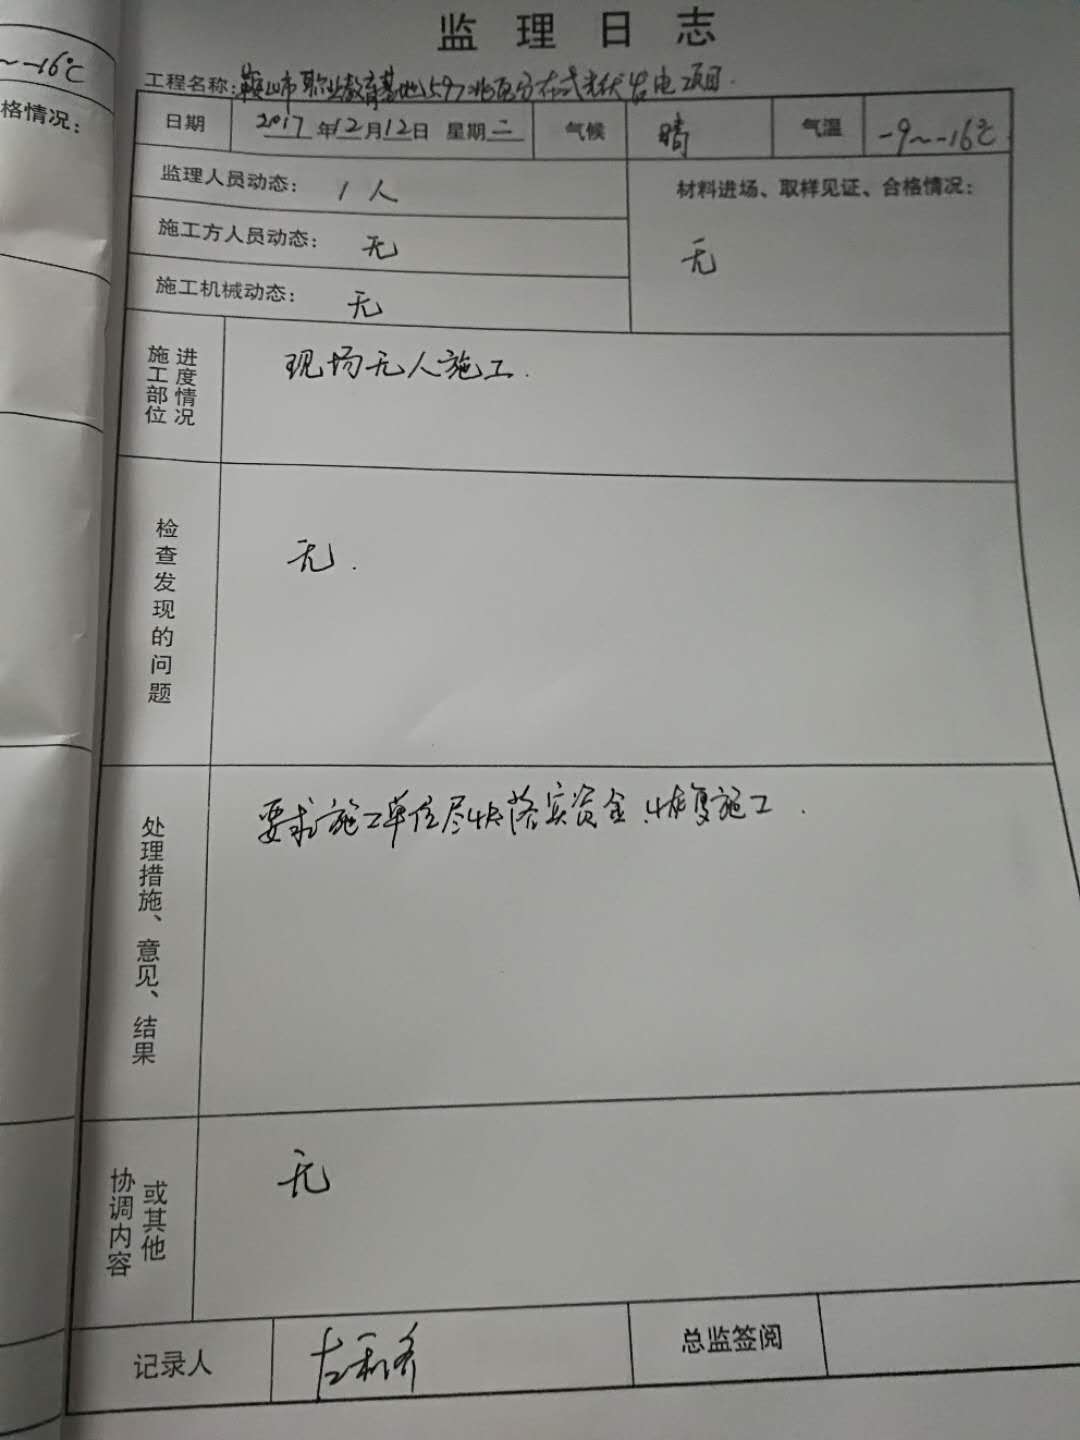 监理日志
工程名称:鞍山市职业教育基地5.97兆瓦分布式光伏发电项目.
日期 2017年12月12日 星期二 气候 晴 气温 -9~-16℃
监理人员动态: 1人
材料进场、取样见证、合格情况:
施工方人员动态: 无
无
施工机械动态: 无
施工部位
进度情况
现场无人施工.
检查发现的问题
无.
处理措施、意见、结果
要求施工单位尽快落实资金,恢复施工.
协调内容
或其他
无
记录人
总监签阅
~-16℃
格情况: